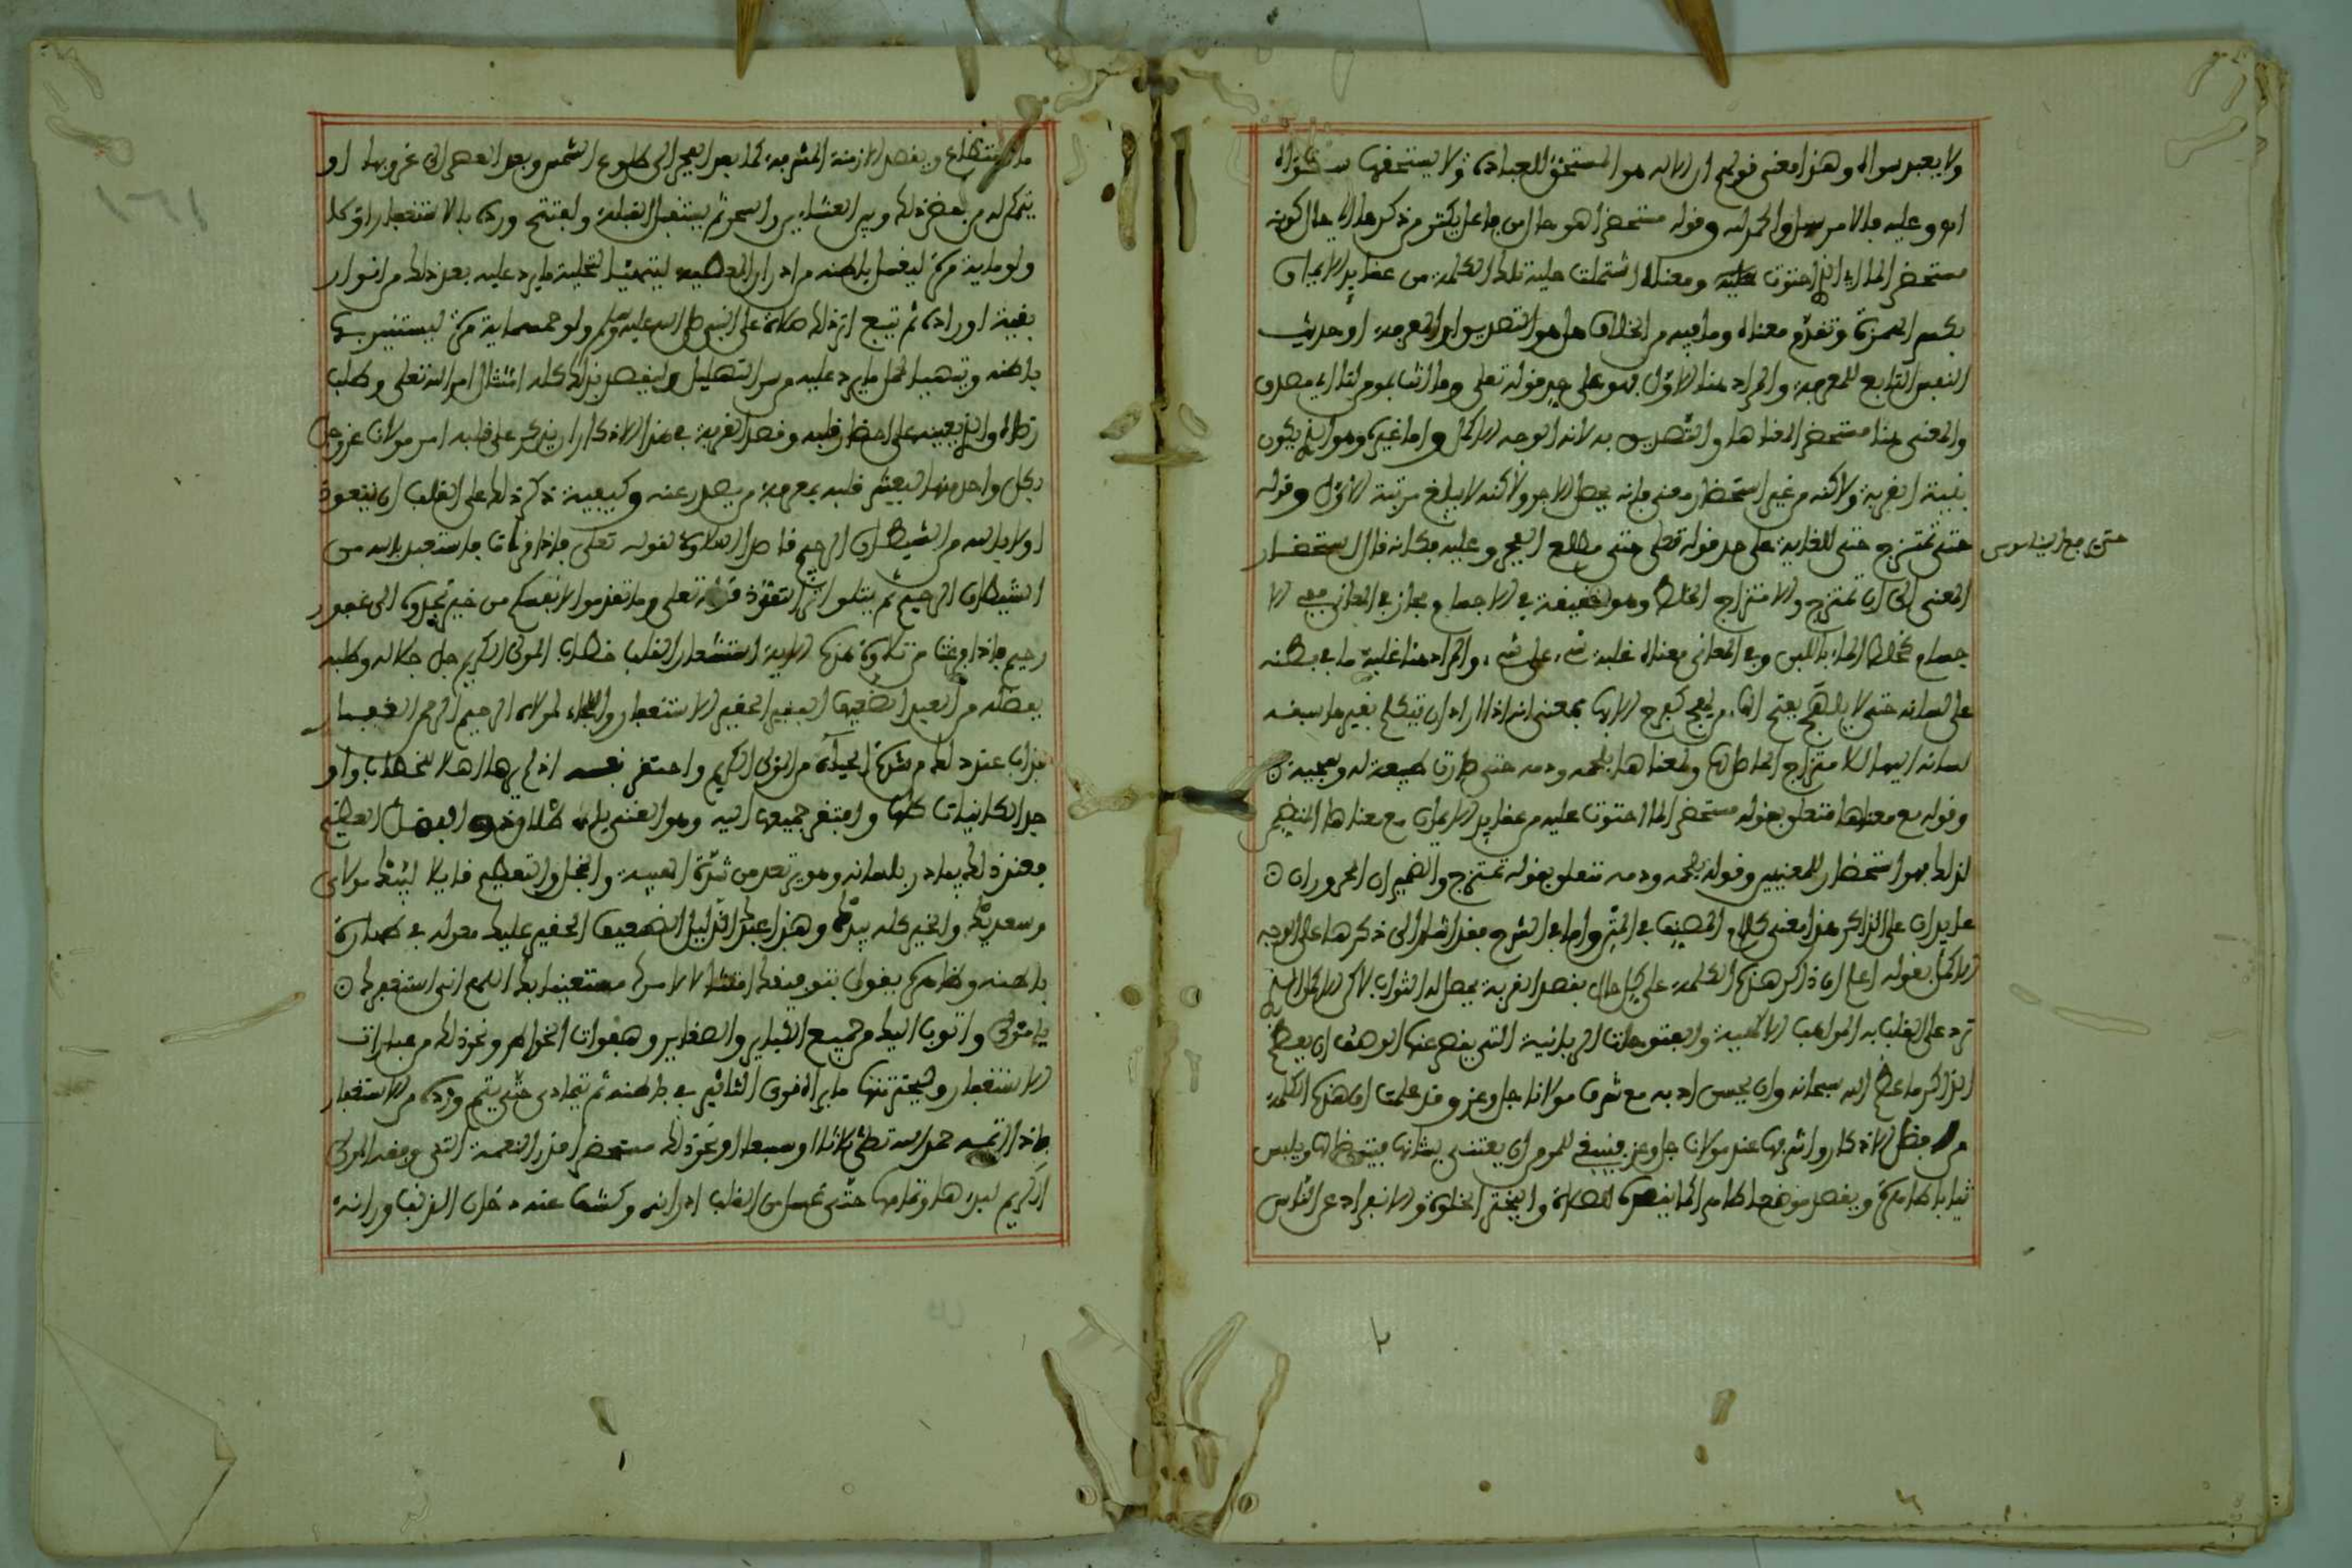 ولا يعبد سواه وهذا معنى قولهم ان الاله هو المستحق للعبادة ولا يستحقها سواه
وعليه فلا وقوله مستحضرا هو حال من فاعل يكثر من ذكرها اي حال كونه
مستحضرا لما اي الذي احتوت عليه ومعناه اشتملت عليه تلك الكلمة من عقايد الايمان
بكسر الهمزة وتقدم معناه وما فيه من الخلاف هل هو التصديق او المعرفة او حديث
النفس التابع للمعرفة والمراد هنا الاول فهو على حد قوله تعلى وما انت بمومن لنا اي مصدق
والمعنى هنا مستحضرا لمعناها والتصديق به لانه الوجه الاكمل واما غيره وهو الذي يكون
بنية القربة ولاكنه من غير استحضار معنى فانه يحصل الاجر ولاكنه لا يبلغ مرتبة الاول وقوله
حتى تمتزج حتى للغاية على حد قوله تعلى حتى مطلع الفجر وعليه فكانه قال استحضار
المعنى الى ان تمتزج والامتزاج الخلط وهو حقيقة في الاجسام ومجاز في المعاني ففي الا
جسام كخلط الماء باللبن وفي المعاني معناه غلبة شيء على شيء والمراد هنا غلبة ما في بطنه
على لسانه حتى لا يلهج بفتح الهاء من لهج كفرح الا بها بمعنى انه اذا اراد ان يتكلم بغيرها سبقه
لسانه اليها لامتزاج الفاظها ومعناها بلحمه ودمه حتى صارت طبيعة له وسجية
وقوله مع معناها متعلق بقوله مستحضرا لما احتوت عليه من عقايد الايمان مع معناها المتضمن
لذلك فهو استحضار للمعنيين وقوله بلحمه ودمه متعلق بقوله تمتزج والضميران المجروران
عايدان على الذاكر هذا معنى كلام المصنف في المتن واما في الشرح فقد اشار الى ذكرها على الوجه
الاكمل بقوله اعلم ان ذاكر هذه الكلمة على كل حال بقصد القربة يحصل له الثواب لاكن الاكمل الذي
ترد على القلب به المواهب الالهية والفتوحات الربانية التي يقصر عنها الوصف ان يعظم
الذاكر ما عظم الله سبحانه وان يحسن ادبه مع شرف مولانا جل وعز وقد علمت ان هذه الكلمة
من افضل الاذكار واشرفها عند مولانا جل وعز فينبغي للمومن ان يعتني بشانها فيتوضا لها ويلبس
ثيابا طاهرة ويقصد موضعا طاهرا كما يقصده للصلاة وليختر الخلوة والانفراد عن الناس
حتى مع
ما استطاع ويقصد الازمنة المشرفة كما بعد الفجر الى طلوع الشمس وبعد العصر الى غروبها او
يتمكن له من بعض ذلك وبين العشاءين والسحر ثم يستقبل القبلة ويفتتح ورده بالاستغفار اولا
ولو ماية مرة ليغسل باطنه من ادران المعصية ليتهيئا لتحلية ما يرد عليه بعد ذلك من انوار
بقية اوراده ثم يتبع اثر ذلك صلاة على النبي صلى الله عليه وسلم ولو خمسماية مرة ليستنير بها
باطنه ويتهيا لحمل ما يرد عليه من سر التهليل وليقصد بذلك كله امتثال امر الله تعلى وطلب
رضاه والذي يعينه على احضار قلبه وقصد القربة في هذا الاذكار ان يذكر على قلبه امر مولانا عز وجل
بكل واحد منها ليعتبر قلبه بمعرفة من يصدر عنه وكيفية ذكر ذلك على القلب ان يتعوذ
اولا بالله من الشيطان الرجيم قاصدا التلاوة لقوله تعلى فاذا قرات فاستعذ بالله من
الشيطان الرجيم ثم يتلو اثر التعوذ قوله تعلى وما تقدموا لانفسكم من خير تجدوه الى غفور
رحيم فاذا فرغت من تلاوة هذه الاية استشعار القلب خطاب المولى الكريم جل جلاله وطلبه
بفضله من العبد الضعيف الفقير الحقير الاستغفار واللجاء لمولاه الرحيم الرحم الغفار
فذاب عند ذلك من شدة الحياء من المولى الكريم واحتقر نفسه اذ لم يرها اهلا لخطاب من او
جد الكاينات كلها وافتقر جميعها اليه وهو الغني باطلاق ذو الفضل العظيم
فعند ذلك يبادر بلسانه وهو يرتعد من شدة الهيبة والخجل والتعظيم قايلا لبيك مولاي
وسعديك والخير كله بيدك وهذا عبدك الذليل الضعيف الحقير عليك معوله في طهارة
باطنه وظاهره يقول بتوفيقك امتثالا لامرك مستعينا بك اللهم اني استغفرك
يا مولى واتوب اليك من جميع الكباير والصغاير وهفوات الخواطر ونحو ذلك من عبارات
الاستغفار وليختر منها ما يراه قوي التاثير في باطنه ثم يتمادى حتى يتم ورده من الاستغفار
فاذا اتمه حمد الله تعلى ثلاثا او سبعا او نحو ذلك مستحضرا قدر النعمة التي وفقه المولى
الكريم لبدءها وتمامها حتى غسل من القلب ادرانه وكشف عنه دخان الذنوب ورانه